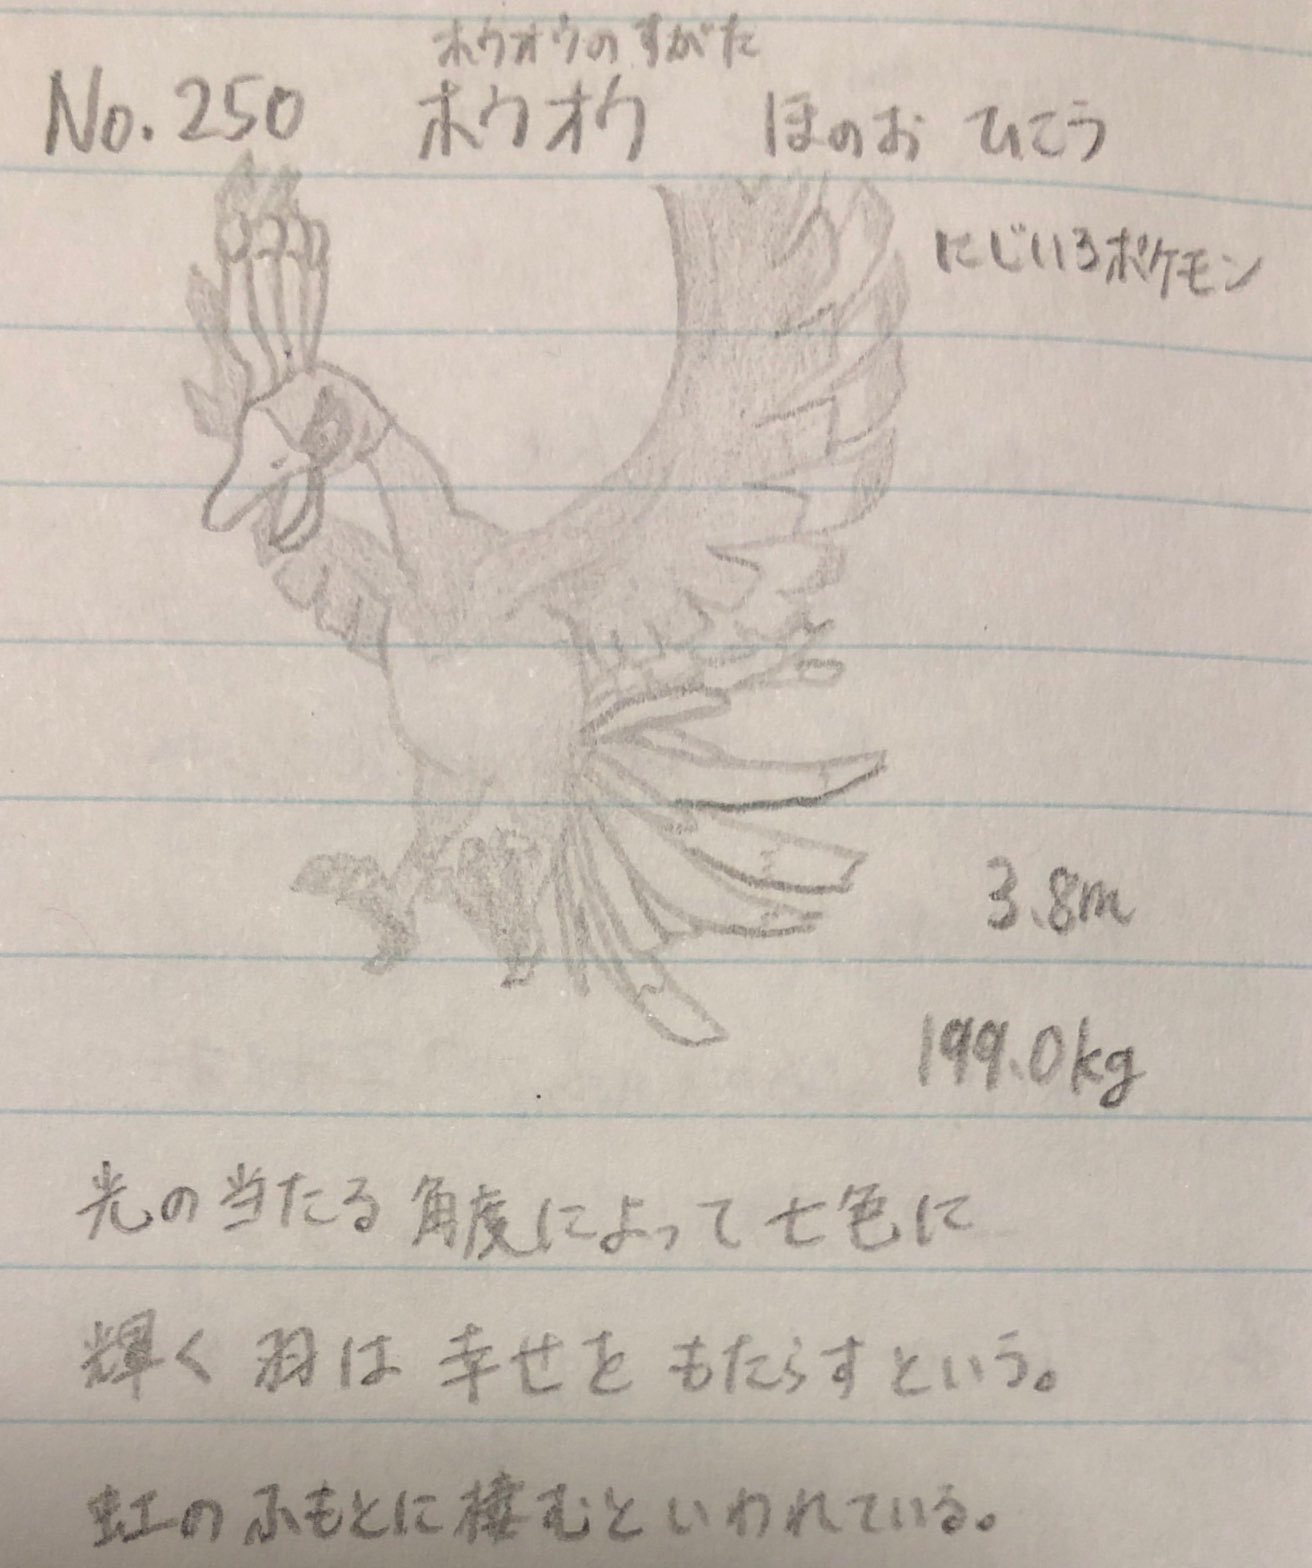 ホウオウのすがた
No.250 ホウオウ ほのお ひこう
にじいろポケモン
3.8m
199.0kg
光の当たる角度によって七色に
輝く羽は幸せをもたらすという。
虹のふもとに棲むといわれている。